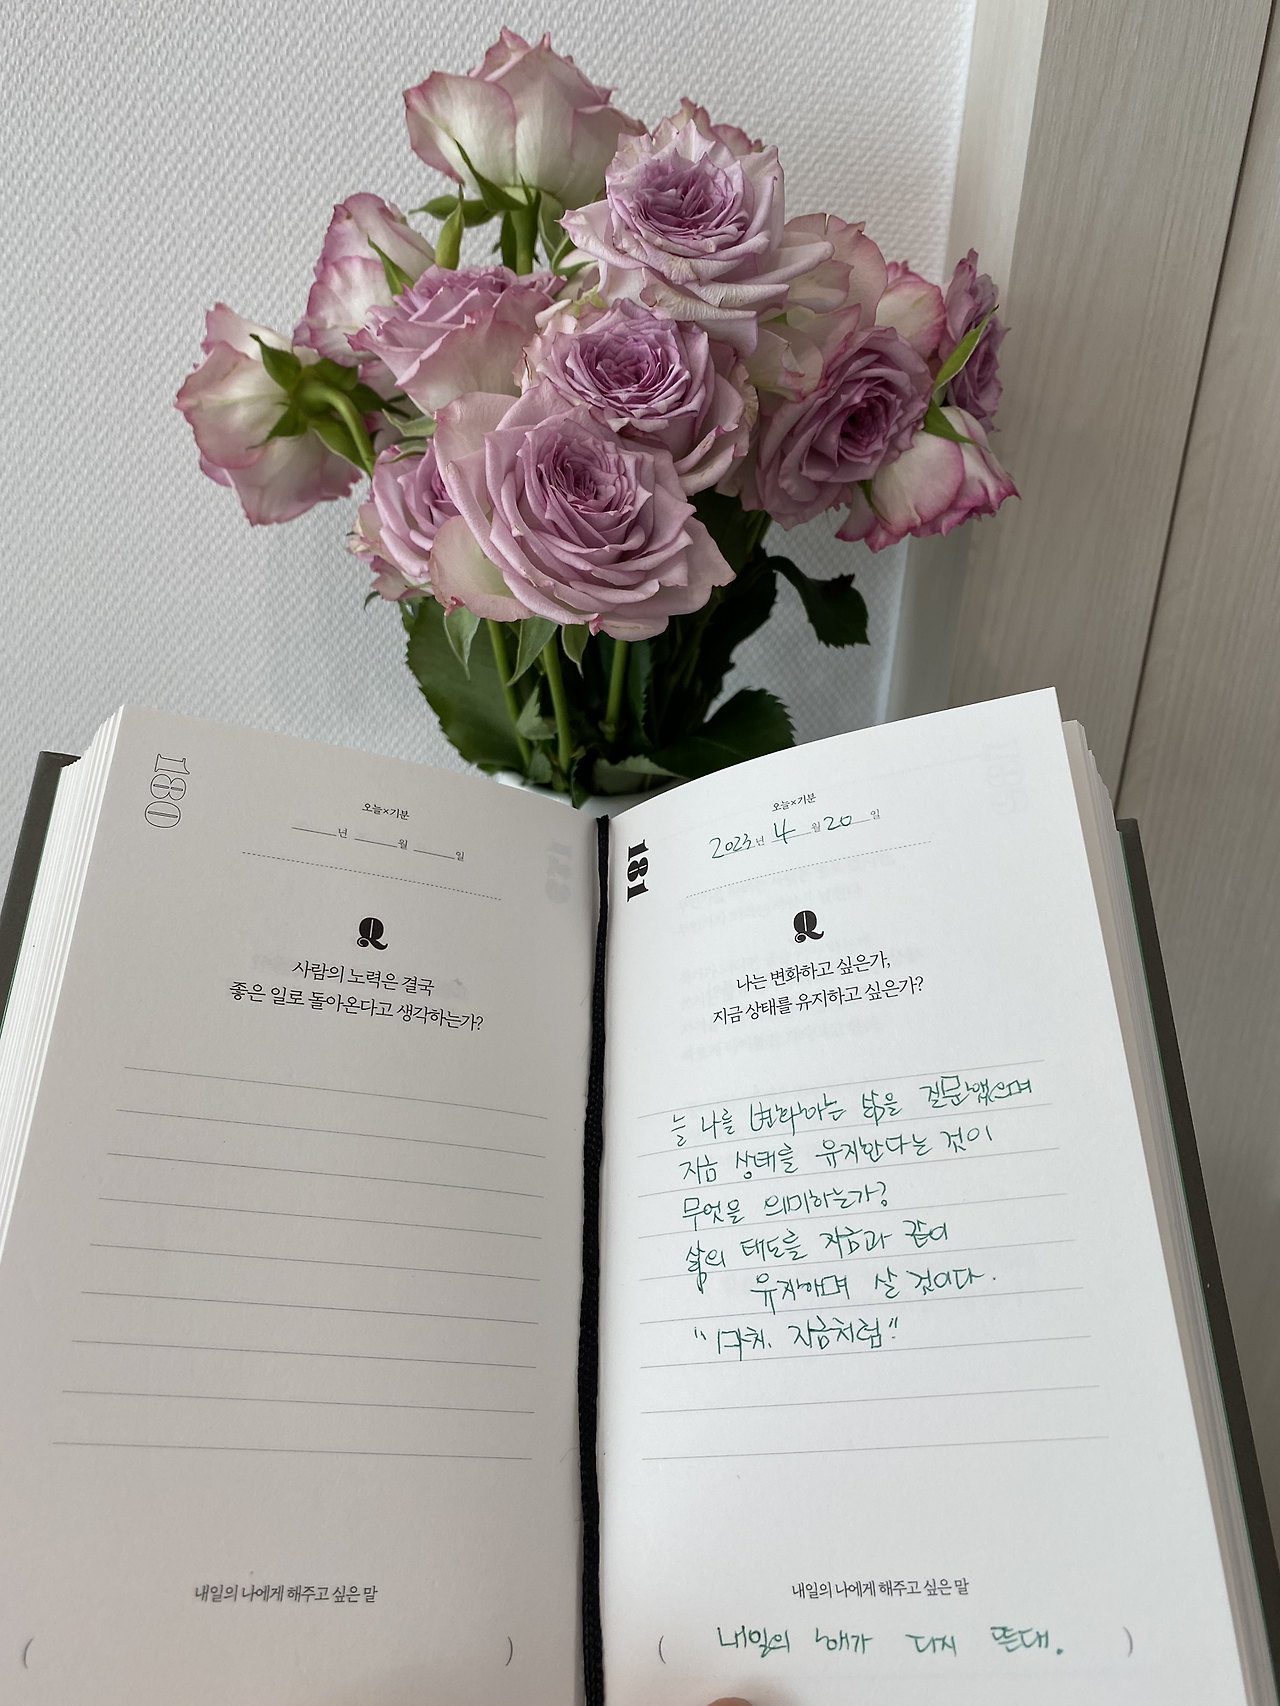 180
오늘×기분
년 월 일
Q
사람의 노력은 결국
좋은 일로 돌아온다고 생각하는가?
내일의 나에게 해주고 싶은 말
( )
181
오늘×기분
2023년 4월 20일
Q
나는 변화하고 싶은가,
지금 상태를 유지하고 싶은가?
늘 나를 변화하는 삶을
지금 상태를 유지한다는 것이
무엇을 의미하는가?
삶의 태도를 지금과 같이
유지하며 살 것이다.
"마치. 지금처럼"
내일의 나에게 해주고 싶은 말
( 내일의 해가 다시 뜬대. )